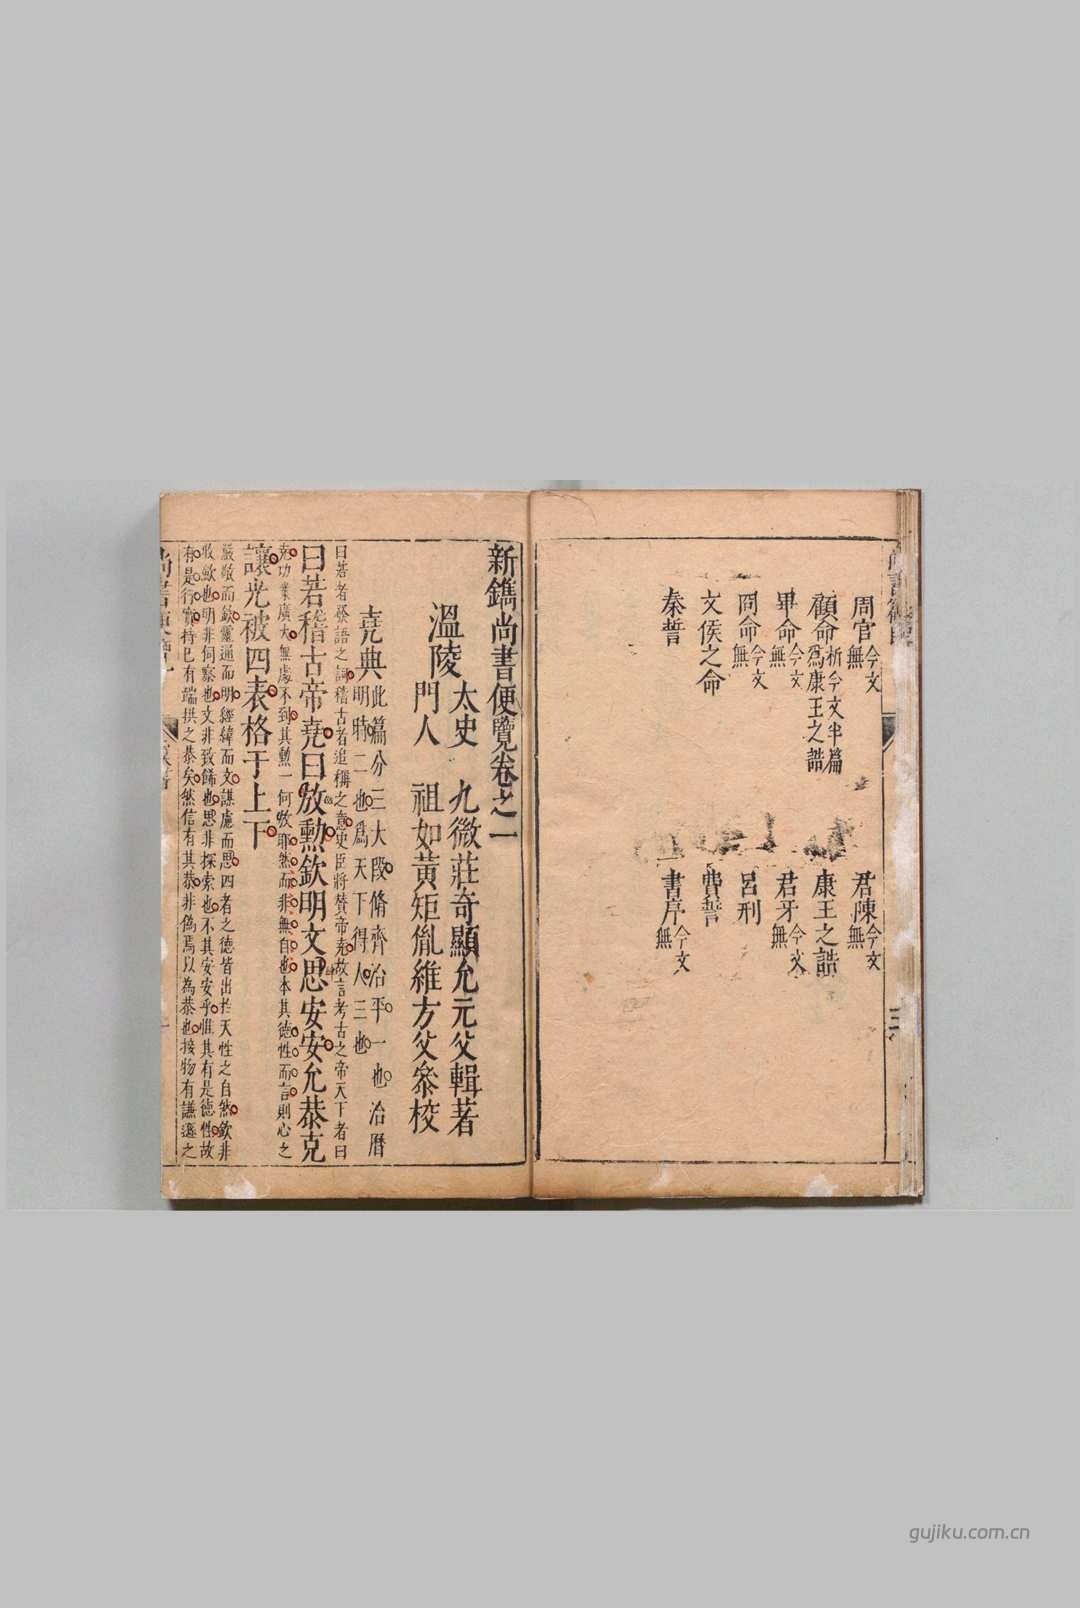 周官今文無
君陳今文無
顧命析今文半篇為康王之誥
康王之誥
畢命今文無
君牙今文無
冏命今文無
呂刑
文侯之命
費誓
秦誓
書序今文無
新鐫尚書便覽卷之一
溫陵
太史 九微莊奇顯允元父輯著
門人 祖如黃矩胤維方父叅校
堯典此篇分三大段脩齊治平一也治曆
明時二也爲天下得人三也
曰若者發語之詞稽古者追稱之意史臣將贊帝堯故言考古之帝天下者曰
曰若稽古帝堯曰放勳欽明文思安安允恭克
堯功業廣大無處不到其勲一何放耶然而非無自也本其德性而言則心之
讓光被四表格于上下
嚴敬而欽靈通而明經緯而文謀慮而思四者之德皆出於天性之自然欽非
收歛也明非伺察也文非致餙也思非探索也不其安安乎惟其有是德性故
有是行實持己有端拱之恭矣然信有其恭非偽焉以為恭也接物有謙遜之
gujiku.com.cn